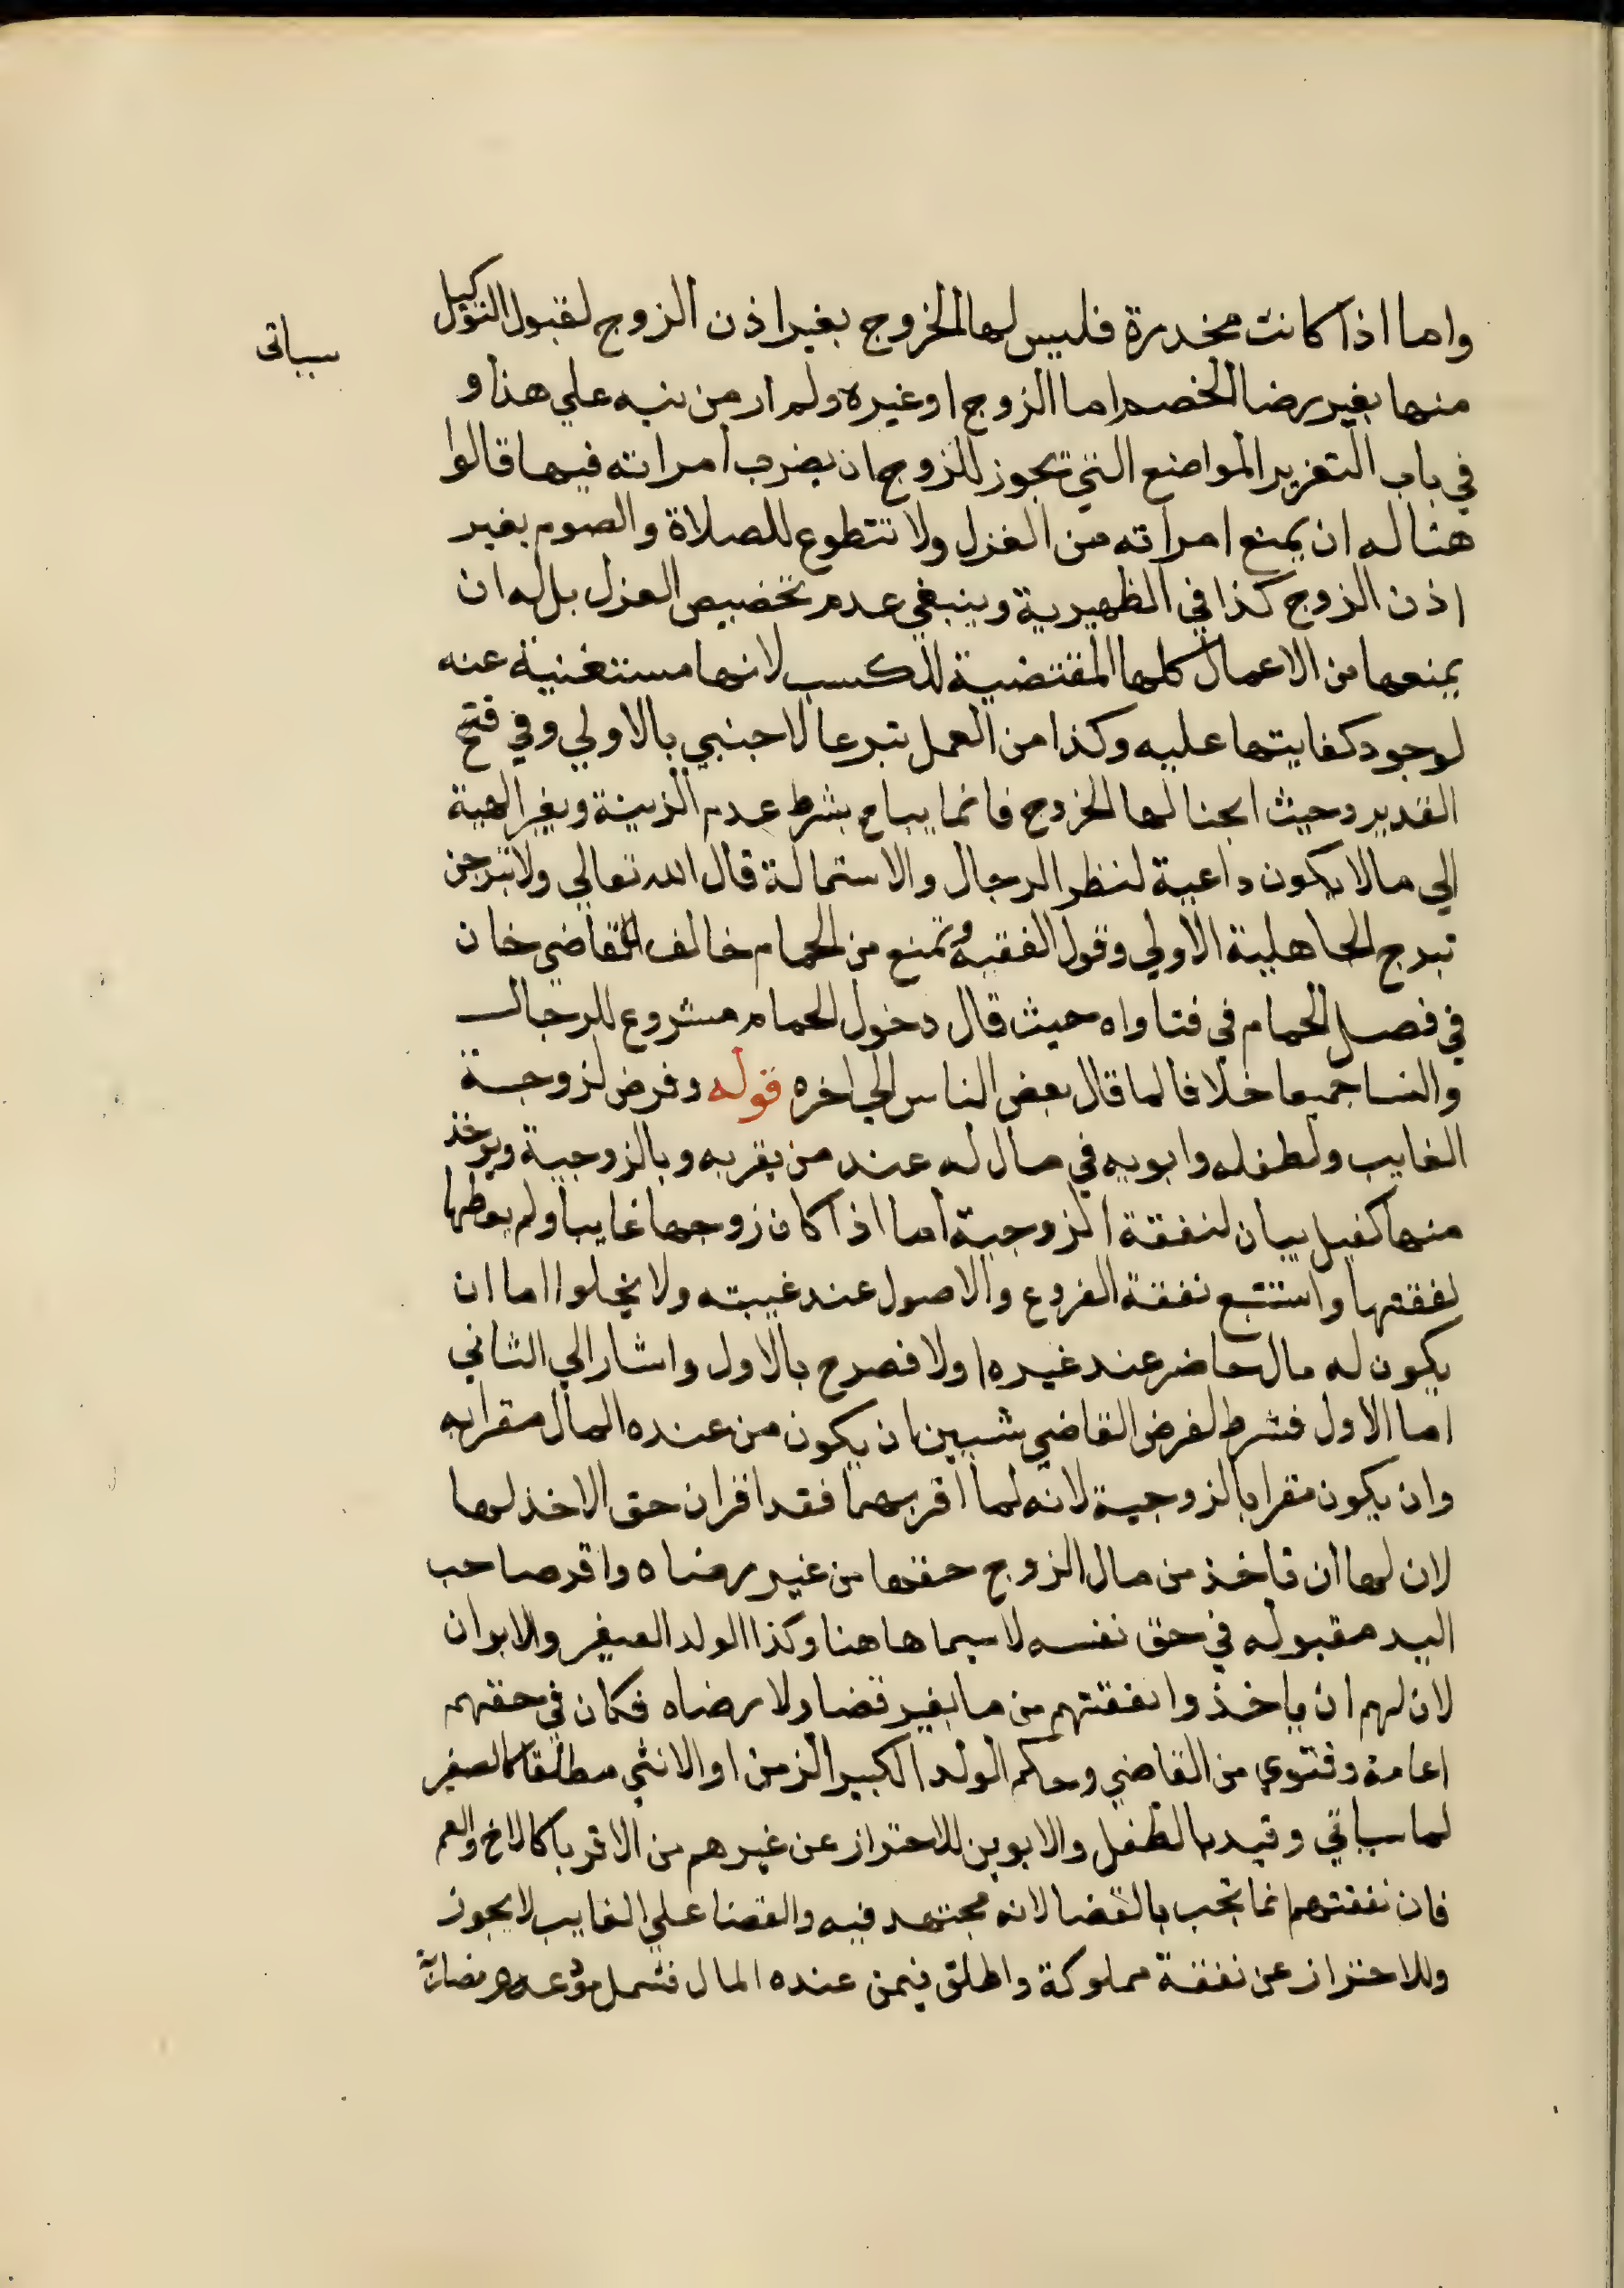 واما اذا كانت مخدرة فليس لها الخروج بغير اذن الزوج لقبول التوكيل
سياتى
منها بغير رضا الخصم اما الزوج او غيره ولم ار من نبه علي هذا و
في باب التعزير المواضع التي تجوز للزوج ان يضرب امراته فيها قالوا
هنا له ان يمنع امراته من الغزل ولا تتطوع للصلاة والصوم بغير
اذن الزوج كذا في الظهيرية وينبغي عدم تخصيص الغزل بل له ان
يمنعها من الاعمال كلها المقتضية للكسب لانها مستغنية عنه
لوجود كفايتها عليه وكذا من العمل تبرعا لاجنبي بالاولي وفي فتح
القدير وحيث ابحنا لها الخروج فانما يباح بشرط عدم الزينة وبغير الهية
الي مالا يكون داعية لنظر الرجال والاستمالة قال الله تعالي ولا تبرجن
تبرج الجاهلية الاولي وقول الفقيه وتمنع من الحمام خالف القاضي خان
في فصل الحمام في فتاواه حيث قال دخول الحمام مشروع للرجال
والنسا جميعا خلافا لما قال بعض الناس الي اخره قوله وفرض لزوجة
الغايب ولطفله وابويه في مال له عند من يقربه وبالزوجية ويوخذ
منها كفيل بيان لنفقة الزوجية اما اذا كان زوجها غايبا ولم يعطها
نفقتها واستتبع نفقة الفروع والاصول عند غيبته ولا يخلوا اما ان
يكون له مال حاضر عند غيره او لا فصرح بالاول واشار الي الثاني
اما الاول فشرط لفرض القاضي شيين ان يكون من عنده المال مقرا به
وان يكون مقرا بالزوجية لانه لما اقر بهما فقد اقر ان حق الاخذ لها
لان لها ان تاخذ من مال الزوج حقها من غير رضاه واقر صاحب
اليد مقبوله في حق نفسه لا سيما هاهنا وكذا الولد الصغير والابوان
لان لهم ان ياخذوا نفقتهم من ما بغير قضا ولا رضاه فكان في حقهم
اعامة وفتوي من القاضي وحكم الولد الكبير الزمن او الانثي مطلقا كالصغير
لما سياتي وقيد بالطفل والابوين للاحتراز عن غيرهم من الاقربا كالاخ والعم
فان نفقتهم انما تجب بالقضا لانه مجتهد فيه والقضا علي الغايب لا يجوز
وللاحتراز عن نفقة مملوكة واطلق فيمن عنده المال فشمل